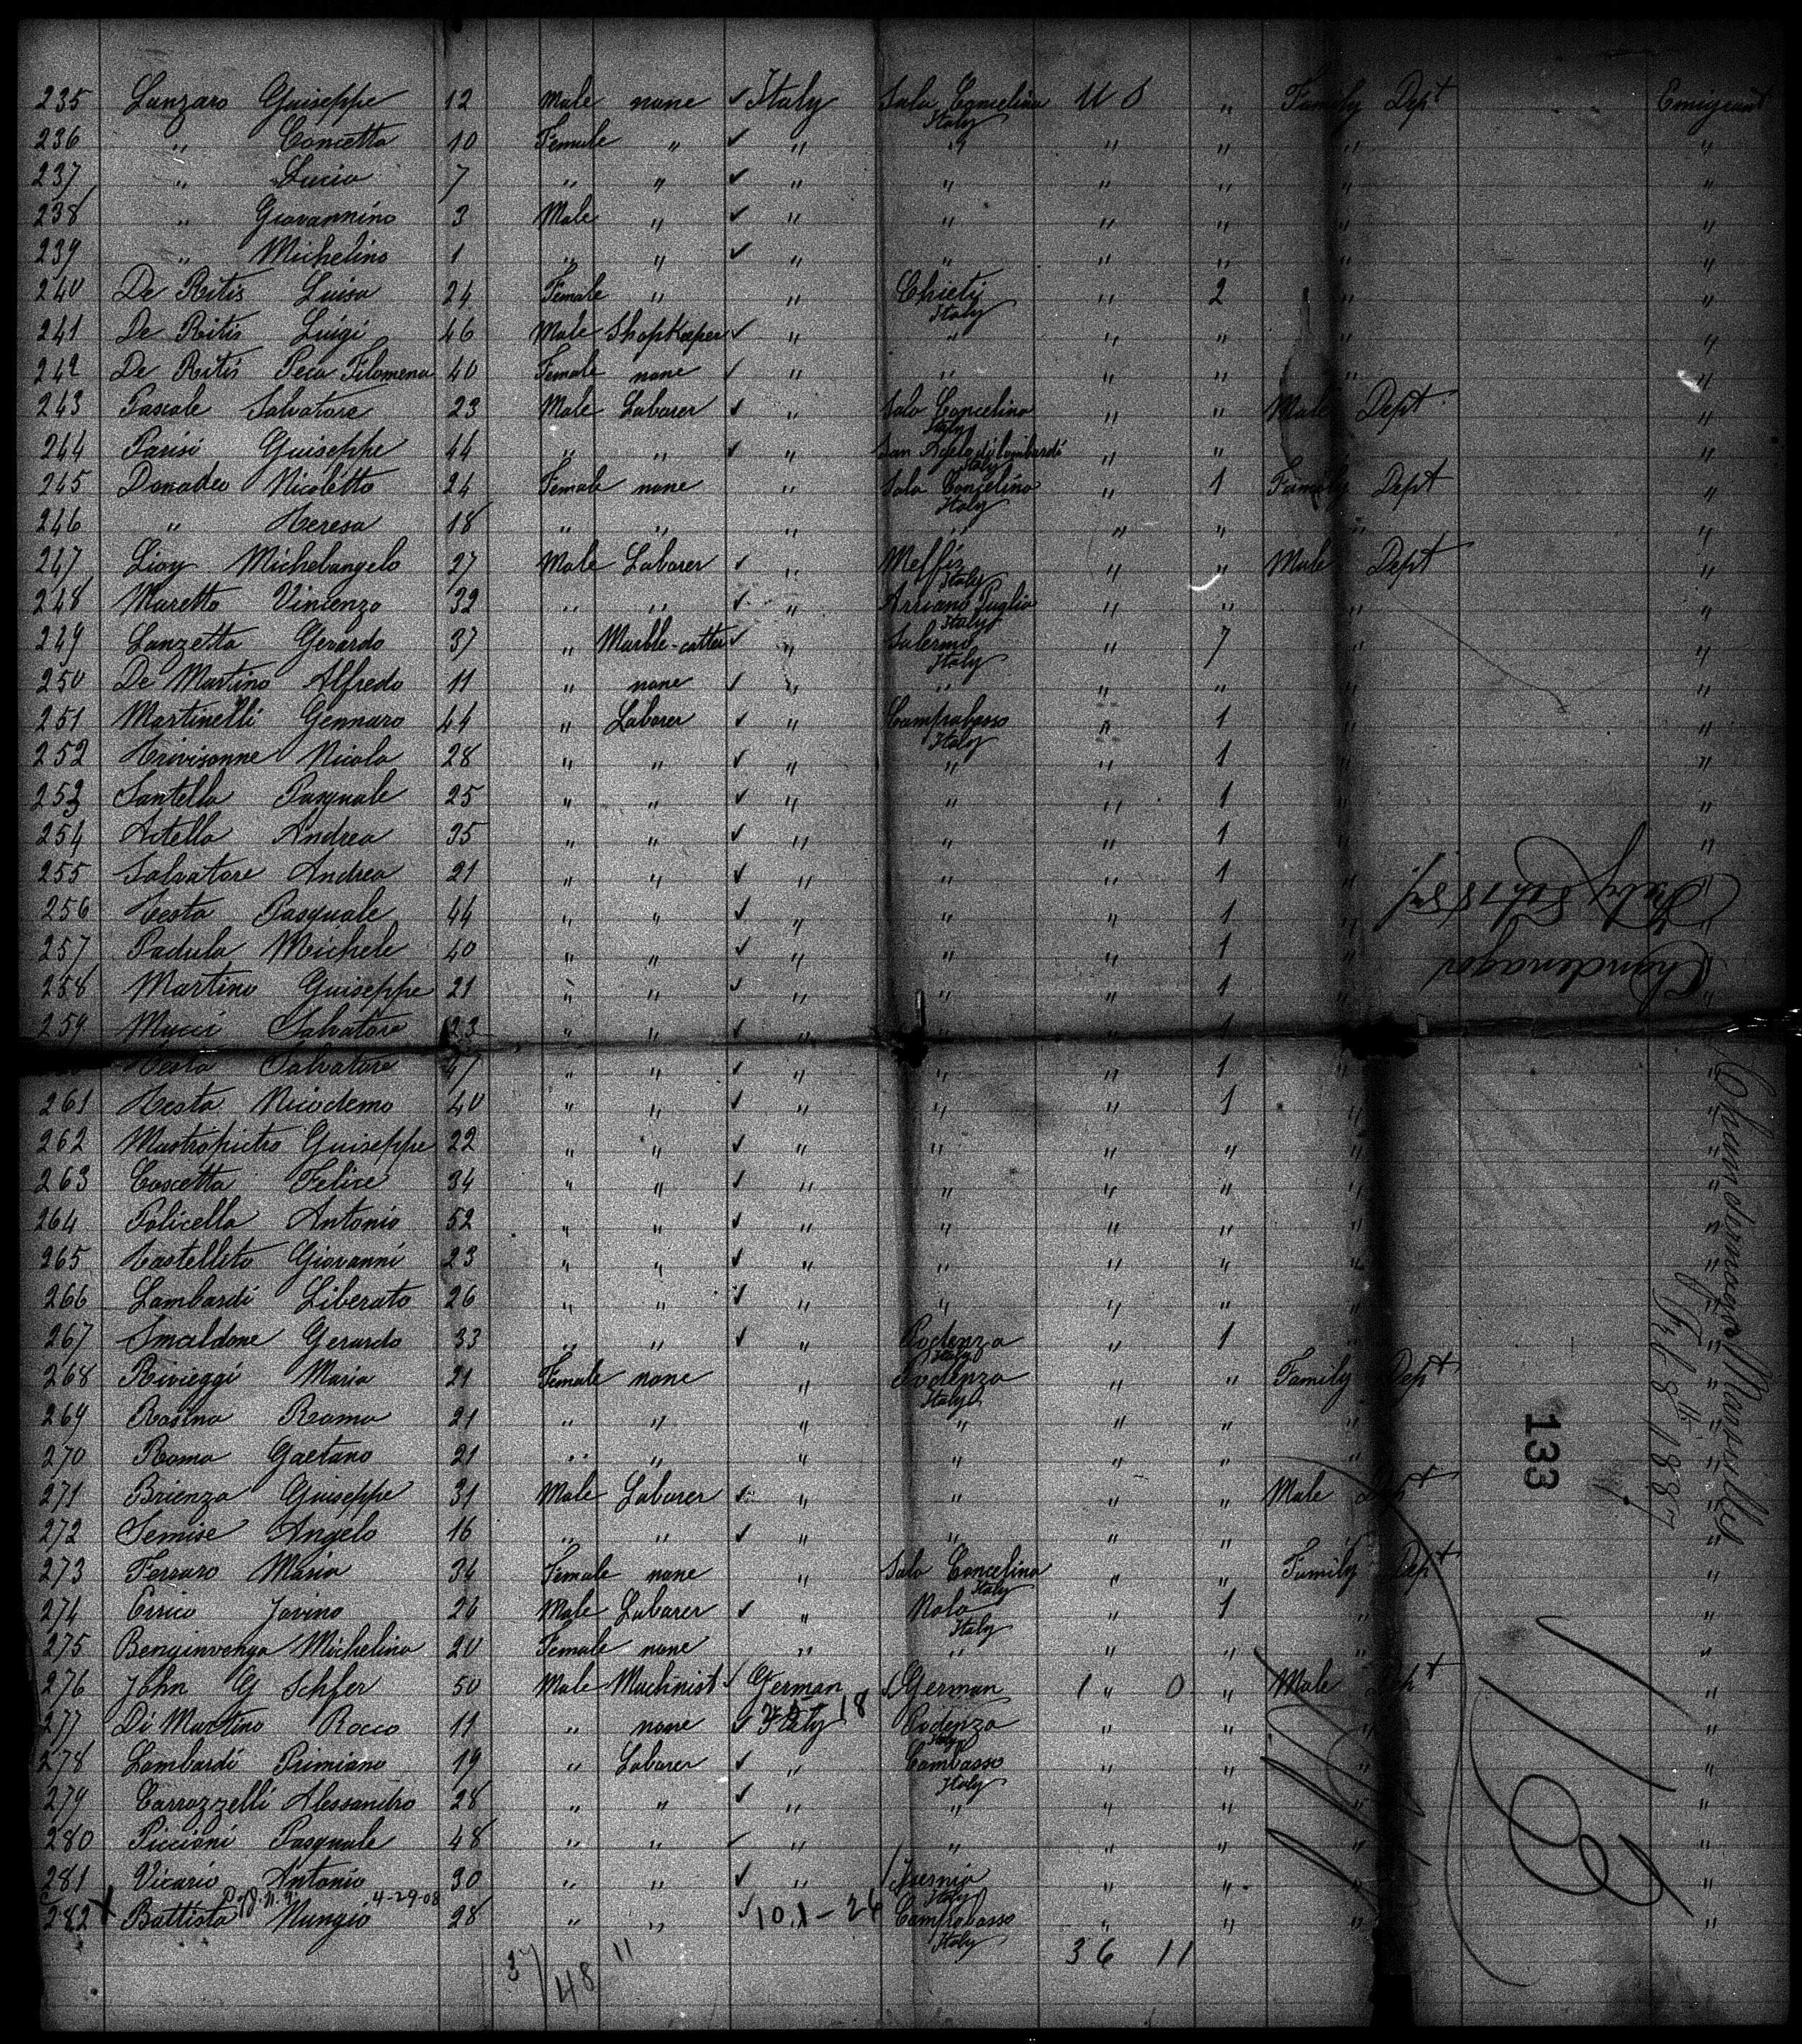 235 Lanzaro Guiseppe 12 Male none ✓ Italy Sala Concelina Italy U S " Family Dept Emigrant
236 " Concetta 10 Female " ✓ " " " " " "
237 " Lucia 7 " " ✓ " " " " " "
238 " Giovannino 3 Male " ✓ " " " " " "
239 " Michelino 1 " " ✓ " " " " " "
240 De Ritis Luisa 24 Female " " Chieti Italy " 2 " "
241 De Ritis Luigi 46 Male Shopkeeper ✓ " " " " " "
242 De Ritis Peca Filomena 40 Female none ✓ " " " " " "
243 Pascale Salvatore 23 Male Laborer ✓ " Sala Concelina Italy " " Male Dept "
244 Parisi Guiseppe 44 " " ✓ " San di lombardi Italy " " "
245 Donadeo Nicoletta 24 Female none " Sala Concelina Italy " 1 Family Dept "
246 " Teresa 18 " " " " " " " "
247 Lioy Michelangelo 27 Male Laborer ✓ " Melfi Italy " " Male Dept "
248 Maretto Vincenzo 32 " " ✓ " Arriano Puglia Italy " " " "
249 Lanzetta Gerardo 37 " Marble-cutter ✓ " Salerno Italy " 7 " "
250 De Martino Alfredo 11 " none ✓ " " " " " "
251 Martinelli Gennaro 44 " Laborer ✓ " Campobasso Italy " 1 "
252 Trivisonne Nicola 28 " " ✓ " " " 1 "
253 Santella Pasquale 25 " " ✓ " " " 1 " "
254 Astella Andrea 35 " " ✓ " " " 1 "
255 Salvatore Andrea 21 " " ✓ " " " 1 " "
256 Testa Pasquale 44 " " ✓ " " " 1 "
257 Padula Michele 40 " " ✓ " " " 1 "
258 Martino Guiseppe 21 " " ✓ " " " 1 " "
259 Mucci Salvatore 23 " " ✓ " " " 1
Testa Salvatore 47 " " ✓ " " " 1 " "
261 Testa Nicodemo 40 " " ✓ " " " 1 " "
262 Mastropietro Guiseppe 22 " " ✓ " " " " " "
263 Coscetta Felice 34 " " ✓ " " " " " "
264 Policella Antonio 52 " " ✓ " " " " " "
265 Castellito Giovanni 23 " " ✓ " " " " " "
266 Lambardi Liberato 26 " " ✓ " " " " " "
267 Smaldone Gerardo 33 " " ✓ " Podenza Italy " 1 " "
268 Rivieggi Maria 21 Female none " Podenza Italy " " Family Dept "
269 Rosina Roma 21 " " " " " " " "
270 Roma Gaetano 21 " " " " " " " "
271 Brienza Guiseppe 31 Male Laborer ✓ " " " " Male Dept "
272 Semise Angelo 16 " " ✓ " " " " " "
273 Ferraro Maria 34 Female none " Sala Concelina Italy " " Family Dept "
274 Errico Jovino 26 Male Laborer ✓ " Nola Italy " 1 " "
275 Benginvenga Michelina 20 Female none " " " " " "
276 John G Schfer 50 Male Machinist ✓ German German 1 " 0 " Male Dept "
277 Di Martino Rocco 11 " none ✓ Italy 18 Podenza Italy " " " "
278 Lombardi Primiano 19 " Laborer ✓ " Combasso Italy " " " "
279 Carrozzelli Alessandro 28 " " ✓ " " " " " "
280 Piccioni Pasquale 48 " " ✓ " " " " " "
281 Vicario Antonio 30 " " ✓ " Isernia Italy " " " "
4-29-08
282 X Battista Nungio 28 " " ✓ 101-24 Campobasso Italy " " " "
37/48 11 36 11
Chandenagor
Feby 8th 1887
Chandernagor Marseilles
Feb 8th 1887
133